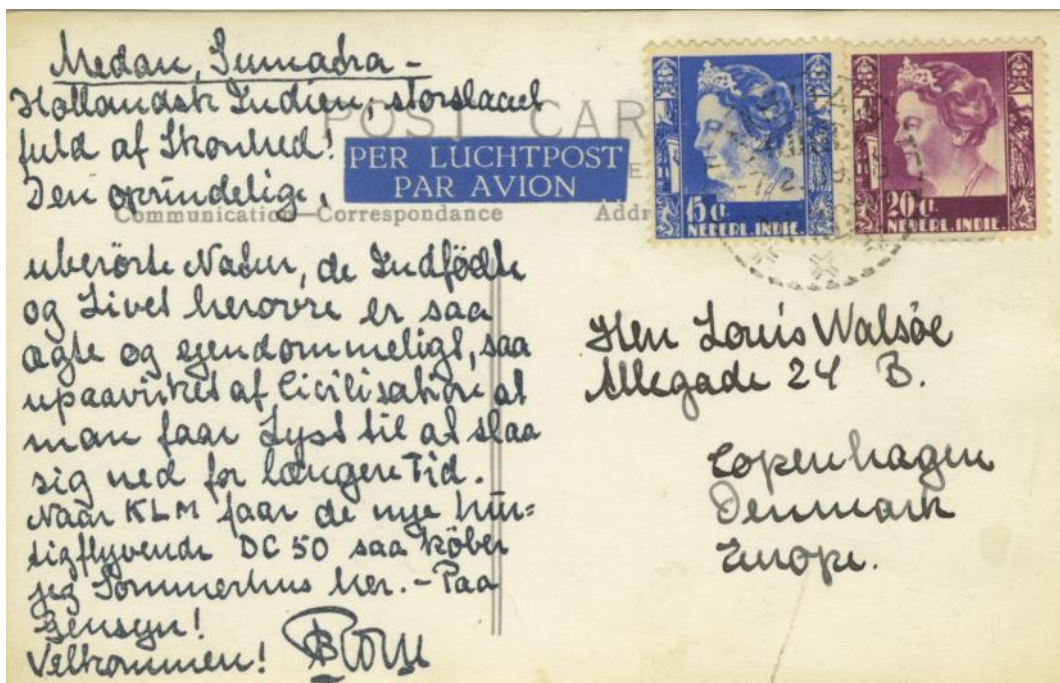 Medan, Sumatra -
Hollandsk Indien, storslaaet
fuld af Skønhed!
Den oprindelige,
uberörte Natur, de Indfödte
og Livet herovre er saa
ægte og ejendommeligt, saa
upaavirket af Civilisation at
man faar Lyst til at slaa
sig ned for længere Tid.
Naar KLM faar de nye hur=
tigflyvende DC 50 saa köber
jeg Sommerhus her. - Paa
Gensyn!
Velkommen!
POST CAR
PER LUCHTPOST
PAR AVION
Communication—Correspondance
Addr
15 ct.
NEDERL. INDIE.
20 ct.
NEDERL. INDIE.
Herr Louis Walsöe
Allegade 24 B.
Copenhagen
Denmark
Europe.